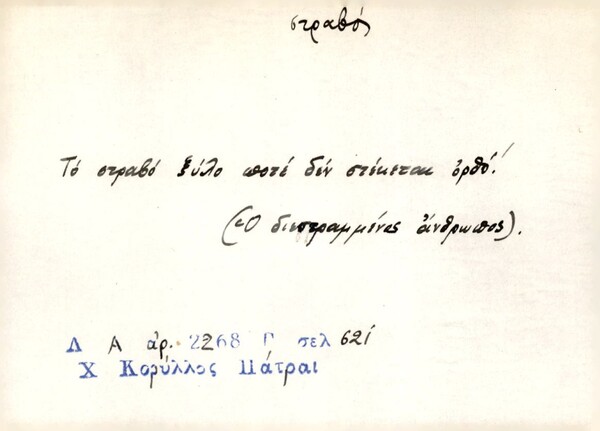 στραβός
Τό στραβό ξύλο ποτέ δέν στέκεται ὀρθό!
(=Ὁ διεστραμμένος ἄνθρωπος).
Λ Α ἀρ. 2268 Γ σελ 621
Χ Κορύλλος Πάτραι